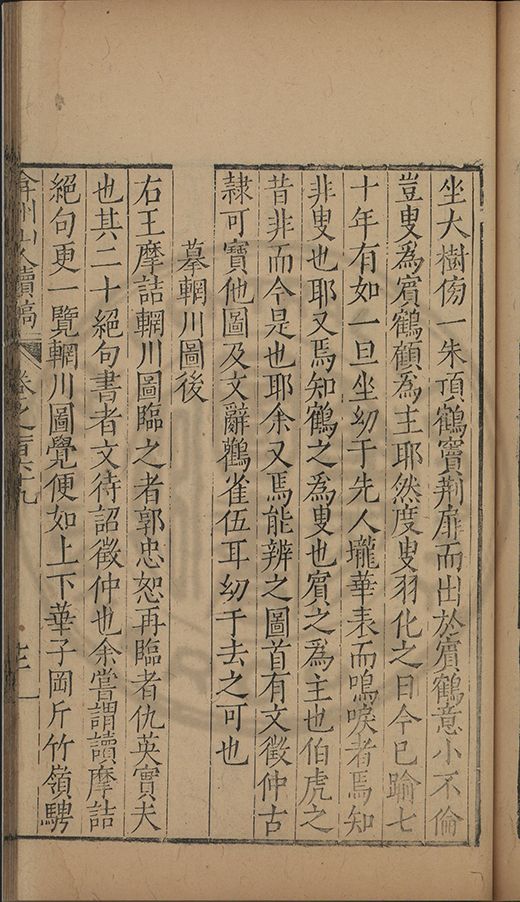 坐大樹傍一朱頂鶴竇荆扉而出於賓鶴意小不倫
豈叟爲賓鶴顧爲主耶然度叟羽化之日今已踰七
十年有如一旦坐幼于先人壠華表而鳴唳者焉知
非叟也耶又焉知鶴之爲叟也賓之爲主也伯虎之
昔非而今是也耶余又焉能辨之圖首有文徵仲古
隸可寶他圖及文辭鸛雀伍耳幼于去之可也
摹輞川圖後
右王摩詰輞川圖臨之者郭忠恕再臨者仇英實夫
也其二十絕句書者文待詔徵仲也余嘗謂讀摩詰
絕句更一覽輞川圖覺便如上下華子岡斤竹嶺騁
弇州山人續稿 卷之一百六十九